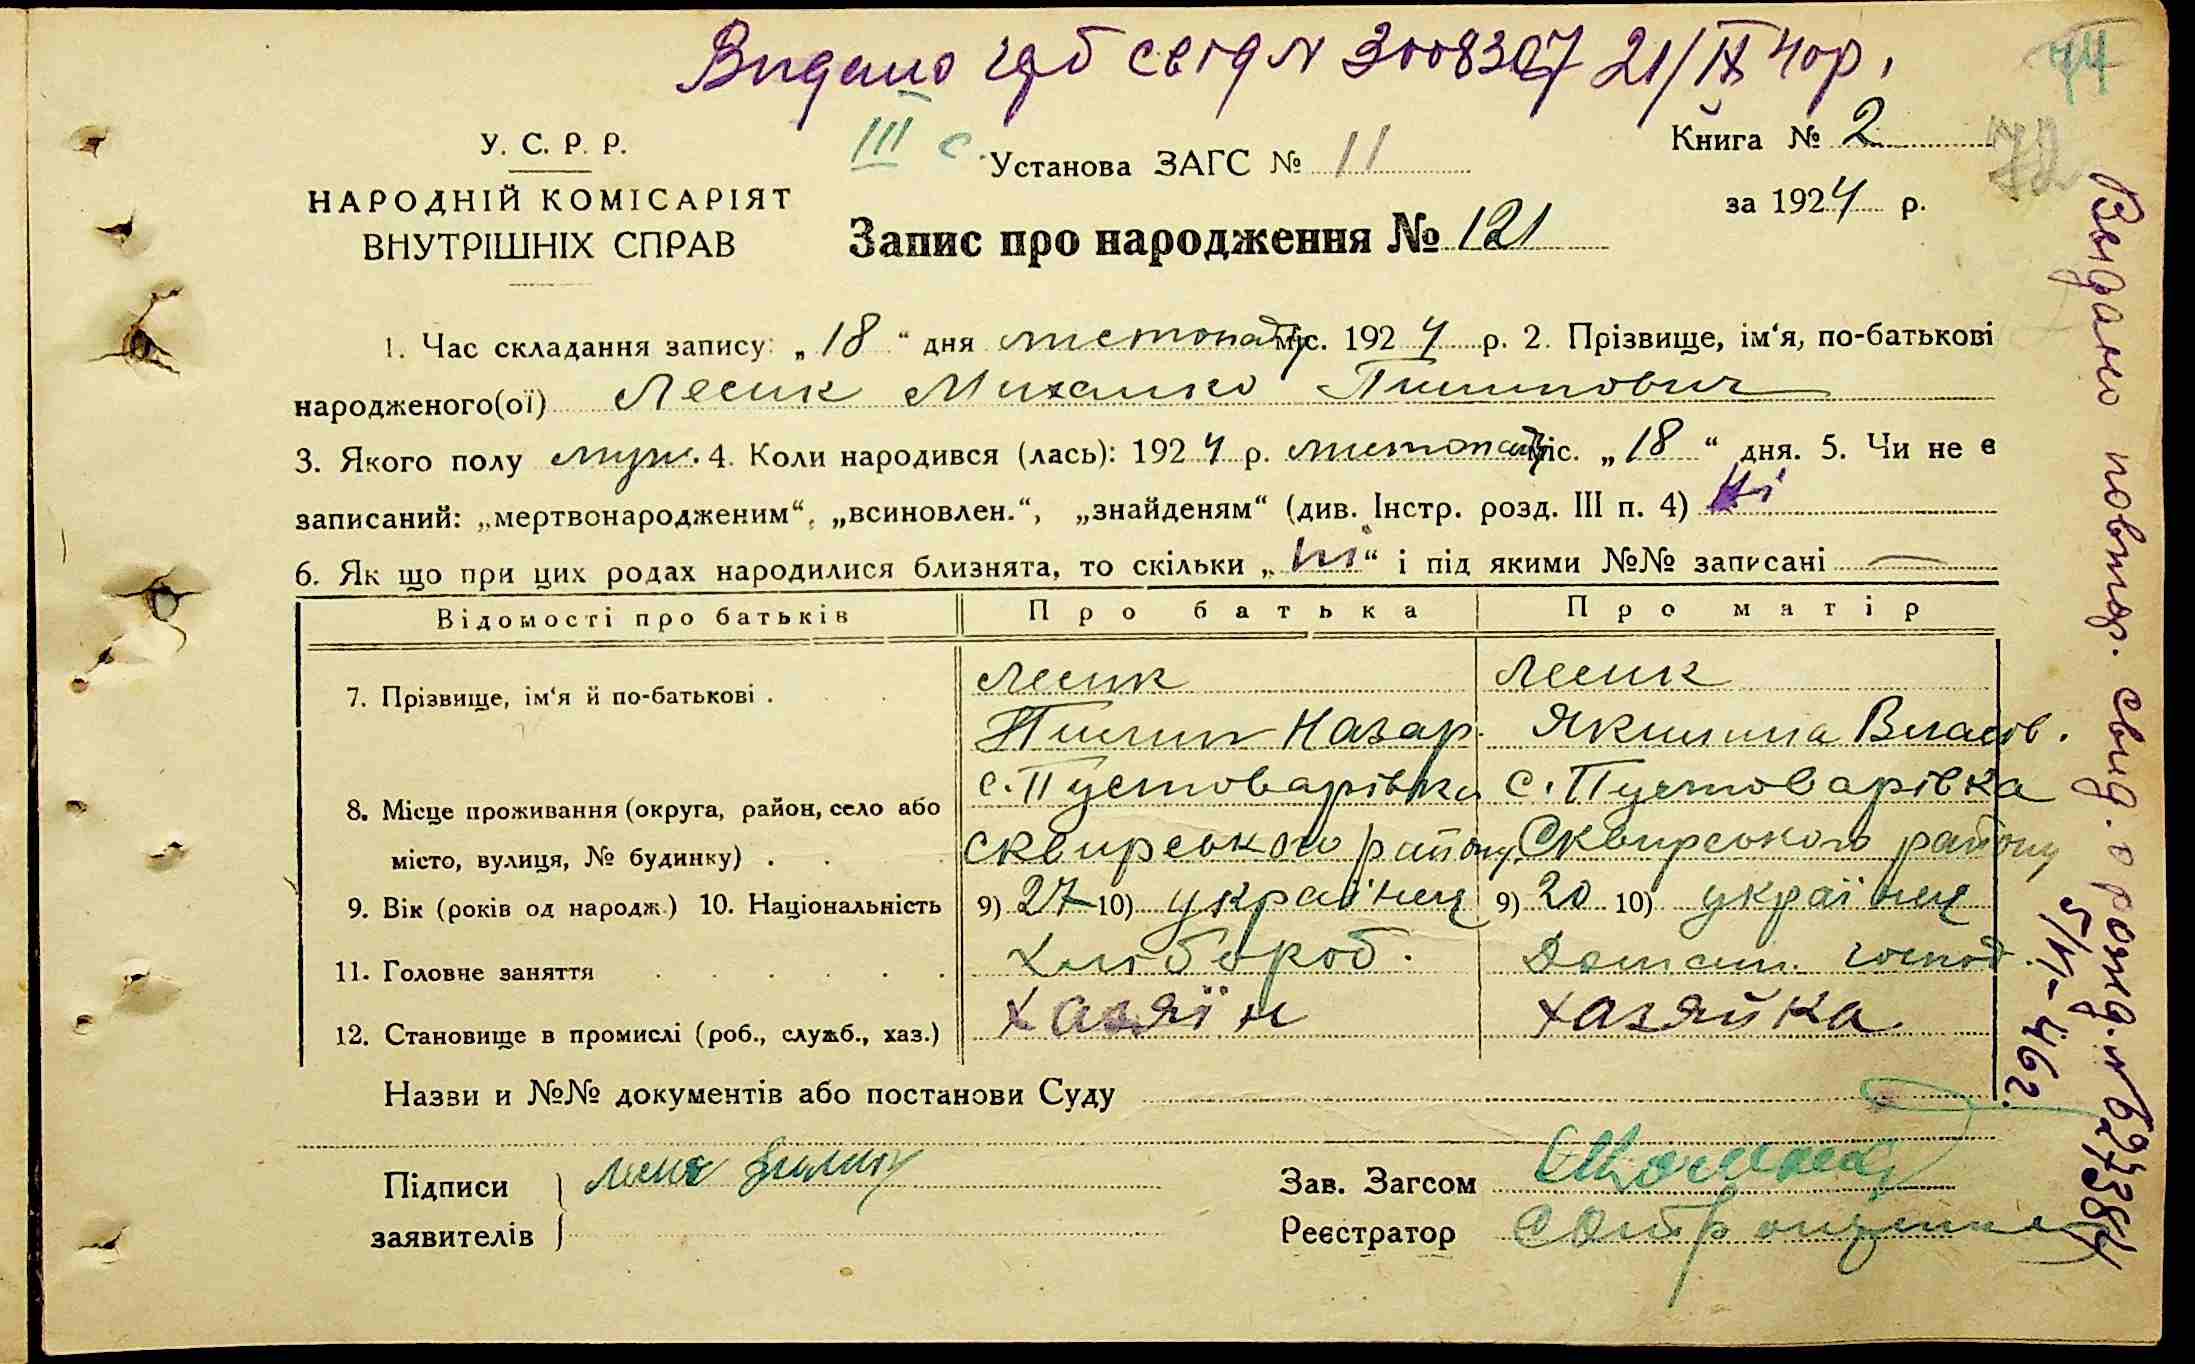 Видано свід N 3008307 21/IX 40р.
74
72
У. С. Р. Р.
НАРОДНІЙ КОМІСАРІЯТ
ВНУТРІШНІХ СПРАВ
III с
Установа ЗАГС № 11
Книга № 2
за 1924 р.
Запис про народження № 121
1. Час складання запису: „18“ дня листопаду міс. 1924 р. 2. Прізвище, ім‘я, по-батькові
народженого(ої) Лесик Михайло Пилипович
3. Якого полу муж. 4. Коли народився (лась): 1924 р. листопаду міс. „18“ дня. 5. Чи не є
записаний: „мертвонародженим“, „всиновлен.“, „знайденям“ (див. Інстр. розд. III п. 4) Ні
6. Як що при цих родах народилися близнята, то скільки „ні“ і під якими №№ записані —
Відомості про батьків Про батька Про матір
7. Прізвище, ім‘я й по-батькові . Лесик Лесик
Пилип Назар. Якилина Власов.
8. Місце проживання (округа, район, село або с. Пустоварівка с. Пустоварівка
місто, вулиця, № будинку) . . Сквирського району Сквирського району
9. Вік (років од народж.) 10. Національність 9) 27 10) українец 9) 20 10) українец
11. Головне заняття . . . . . . Хлібороб. Домаш. господ.
12. Становище в промислі (роб., служб., хаз.) Хазяїн Хазяйка
Назви и №№ документів або постанови Суду
Підписи Лесик Пилип
заявителів
Зав. Загсом
Реєстратор
Выдано повтор. свид. о рожд. N 627384
5/VI-46г.